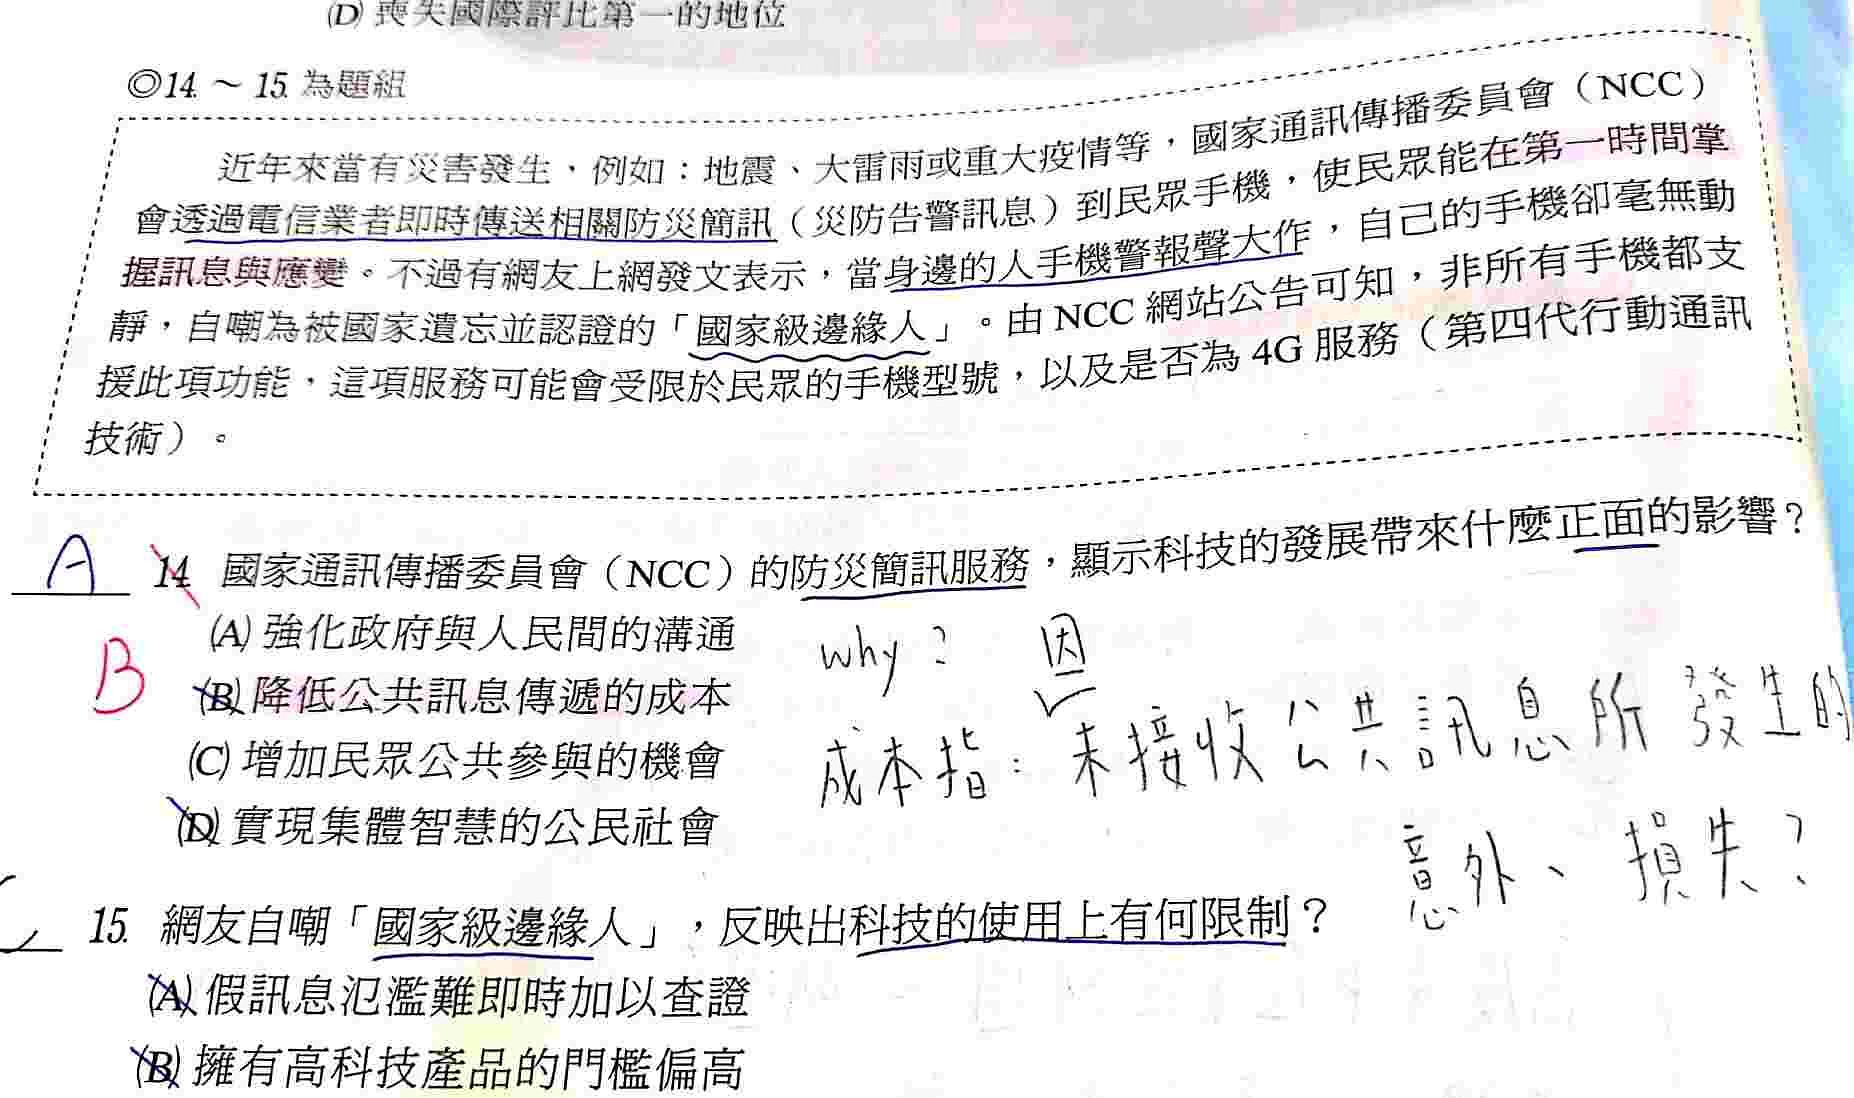 (D) 喪失國際評比第一的地位
◎14. ~ 15. 為題組
近年來當有災害發生，例如：地震、大雷雨或重大疫情等，國家通訊傳播委員會（NCC）
會透過電信業者即時傳送相關防災簡訊（災防告警訊息）到民眾手機，使民眾能在第一時間掌
握訊息與應變。不過有網友上網發文表示，當身邊的人手機警報聲大作，自己的手機卻毫無動
靜，自嘲為被國家遺忘並認證的「國家級邊緣人」。由 NCC 網站公告可知，非所有手機都支
援此項功能，這項服務可能會受限於民眾的手機型號，以及是否為 4G 服務（第四代行動通訊
技術）。
A 14. 國家通訊傳播委員會（NCC）的防災簡訊服務，顯示科技的發展帶來什麼正面的影響？
(A) 強化政府與人民間的溝通
B
(B) 降低公共訊息傳遞的成本
(C) 增加民眾公共參與的機會
(D) 實現集體智慧的公民社會
why？ 因
成本指：未接收公共訊息所發生的
意外、損失？
15. 網友自嘲「國家級邊緣人」，反映出科技的使用上有何限制？
(A) 假訊息氾濫難即時加以查證
(B) 擁有高科技產品的門檻偏高